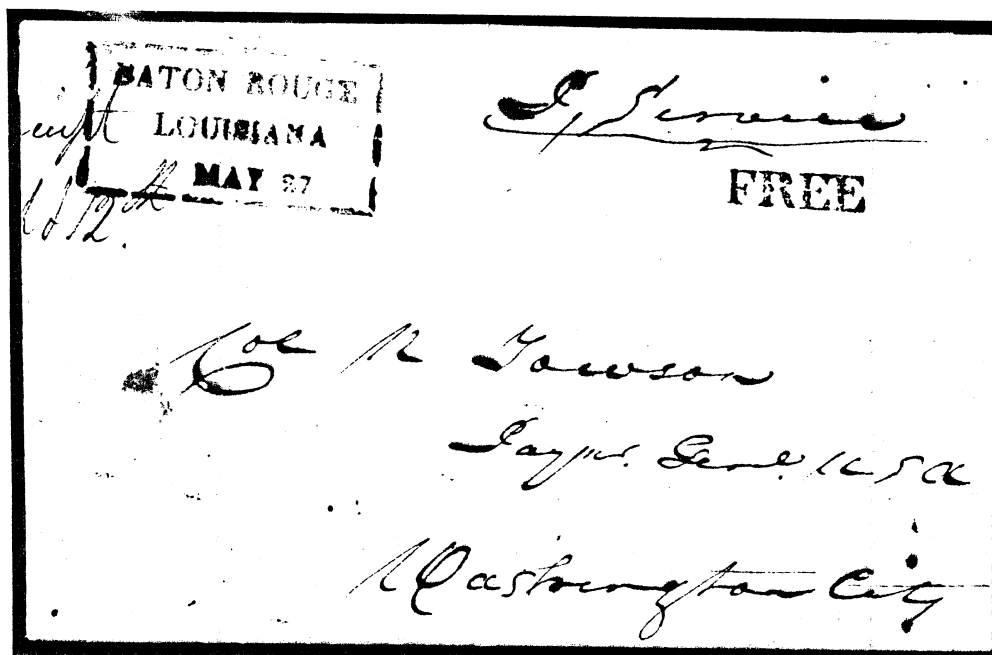 BATON ROUGE
LOUISIANA
MAY 27
P. Service
FREE
12th
Col N Towson
Paymr. Genl. U S A
Washington City